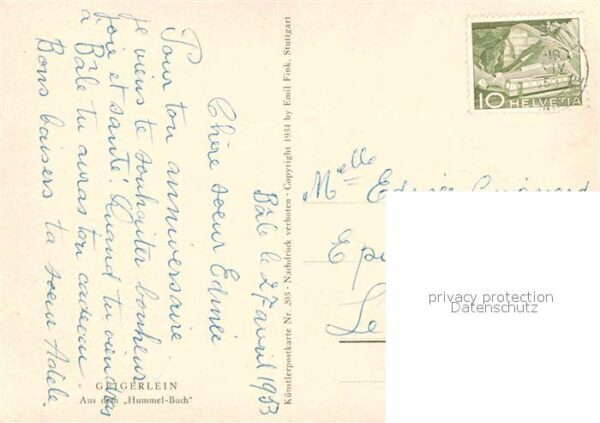 Bâle le 27 avril 1953
Chère sœur Edmée
Pour ton anniversaire
je viens te souhaiter bonheur
joie et santé. Quand tu viendras
à Bâle tu auras ton cadeau.
Bons baisers ta sœur Adèle.
GEIGERLEIN
Aus dem „Hummel-Buch“
Künstlerpostkarte Nr. 203 · Nachdruck verboten · Copyright 1934 by Emil Fink, Stuttgart
10 HELVETIA
Melle Edmée
privacy protection
Datenschutz